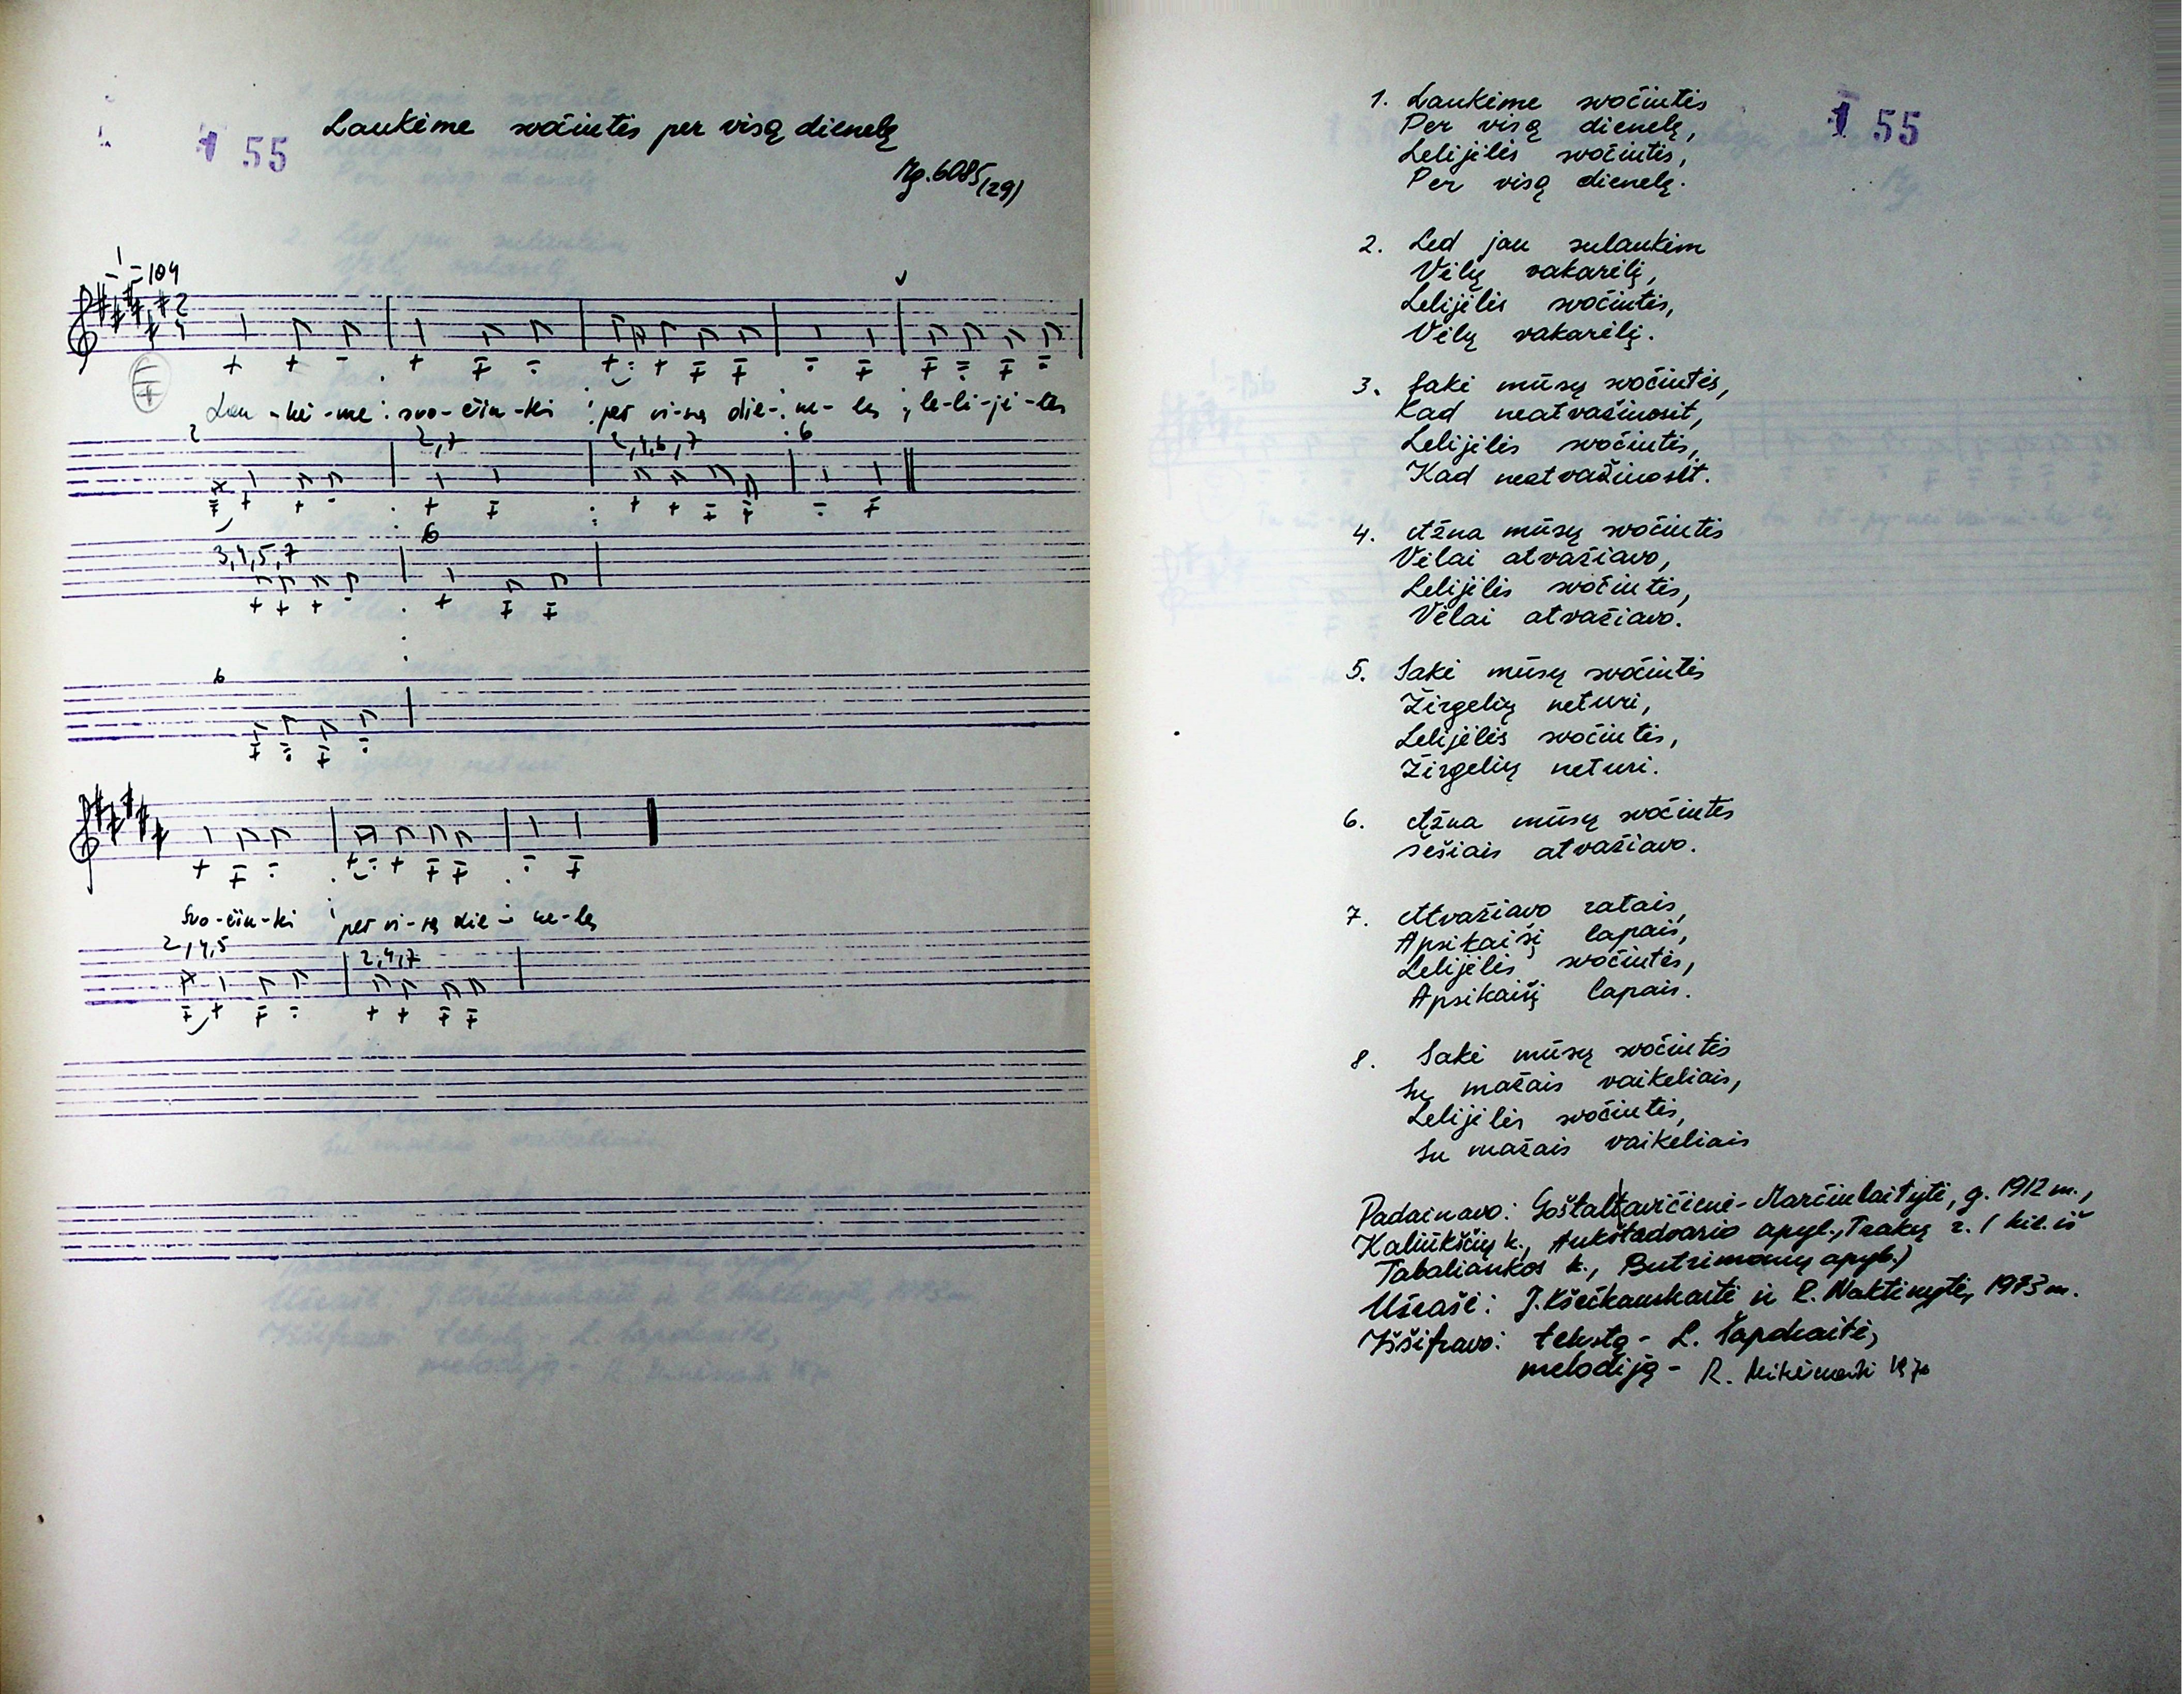 155
Laukėme svočiutės per visą dienelę
Mg. 6085(29)
=104
2
4
Lau-kė-me svo-čiu-tės per vi-są die-ne-lę, le-li-jė-lės
2
2,7
2,4,6,7
6
3,4,5,7
6
6
svo-čiu-tės per vi-są die-ne-lę
2,4,5
2,4,7
155
1. Laukėme svočiutės
Per visą dienelę,
Lelijėlės svočiutės,
Per visą dienelę.
2. Led jau sulaukėm
Vėlų vakarėlį,
Lelijėlės svočiutės,
Vėlų vakarėlį.
3. Sakė mūsų svočiutės,
Kad neatvažiuosit,
Lelijėlės svočiutės,
Kad neatvažiuosit.
4. Ažna mūsų svočiutės
Vėlai atvažiavo,
Lelijėlės svočiutės,
Vėlai atvažiavo.
5. Sakė mūsų svočiutės
Žirgelių neturi,
Lelijėlės svočiutės,
Žirgelių neturi.
6. Ažna mūsų svočiutės
Šešiais atvažiavo.
7. Atvažiavo ratais,
Apsikaišį lapais,
Lelijėlės svočiutės,
Apsikaišį lapais.
8. Sakė mūsų svočiutės
Su mažais vaikeliais,
Lelijėlės svočiutės,
Su mažais vaikeliais
Padainavo: Goštaltavičienė-Marčiulaitytė, g. 1912 m.,
Kaliūkščių k., Aukštadvario apyl., Trakų r. ( kil. iš
Tabaliaukos k., Butrimonių apyl.)
Užrašė: J. Kšečkauskaitė ir R. Naktinytė, 1973 m.
Iššifravo: tekstą - L. Sapokaitė,
melodiją - R.